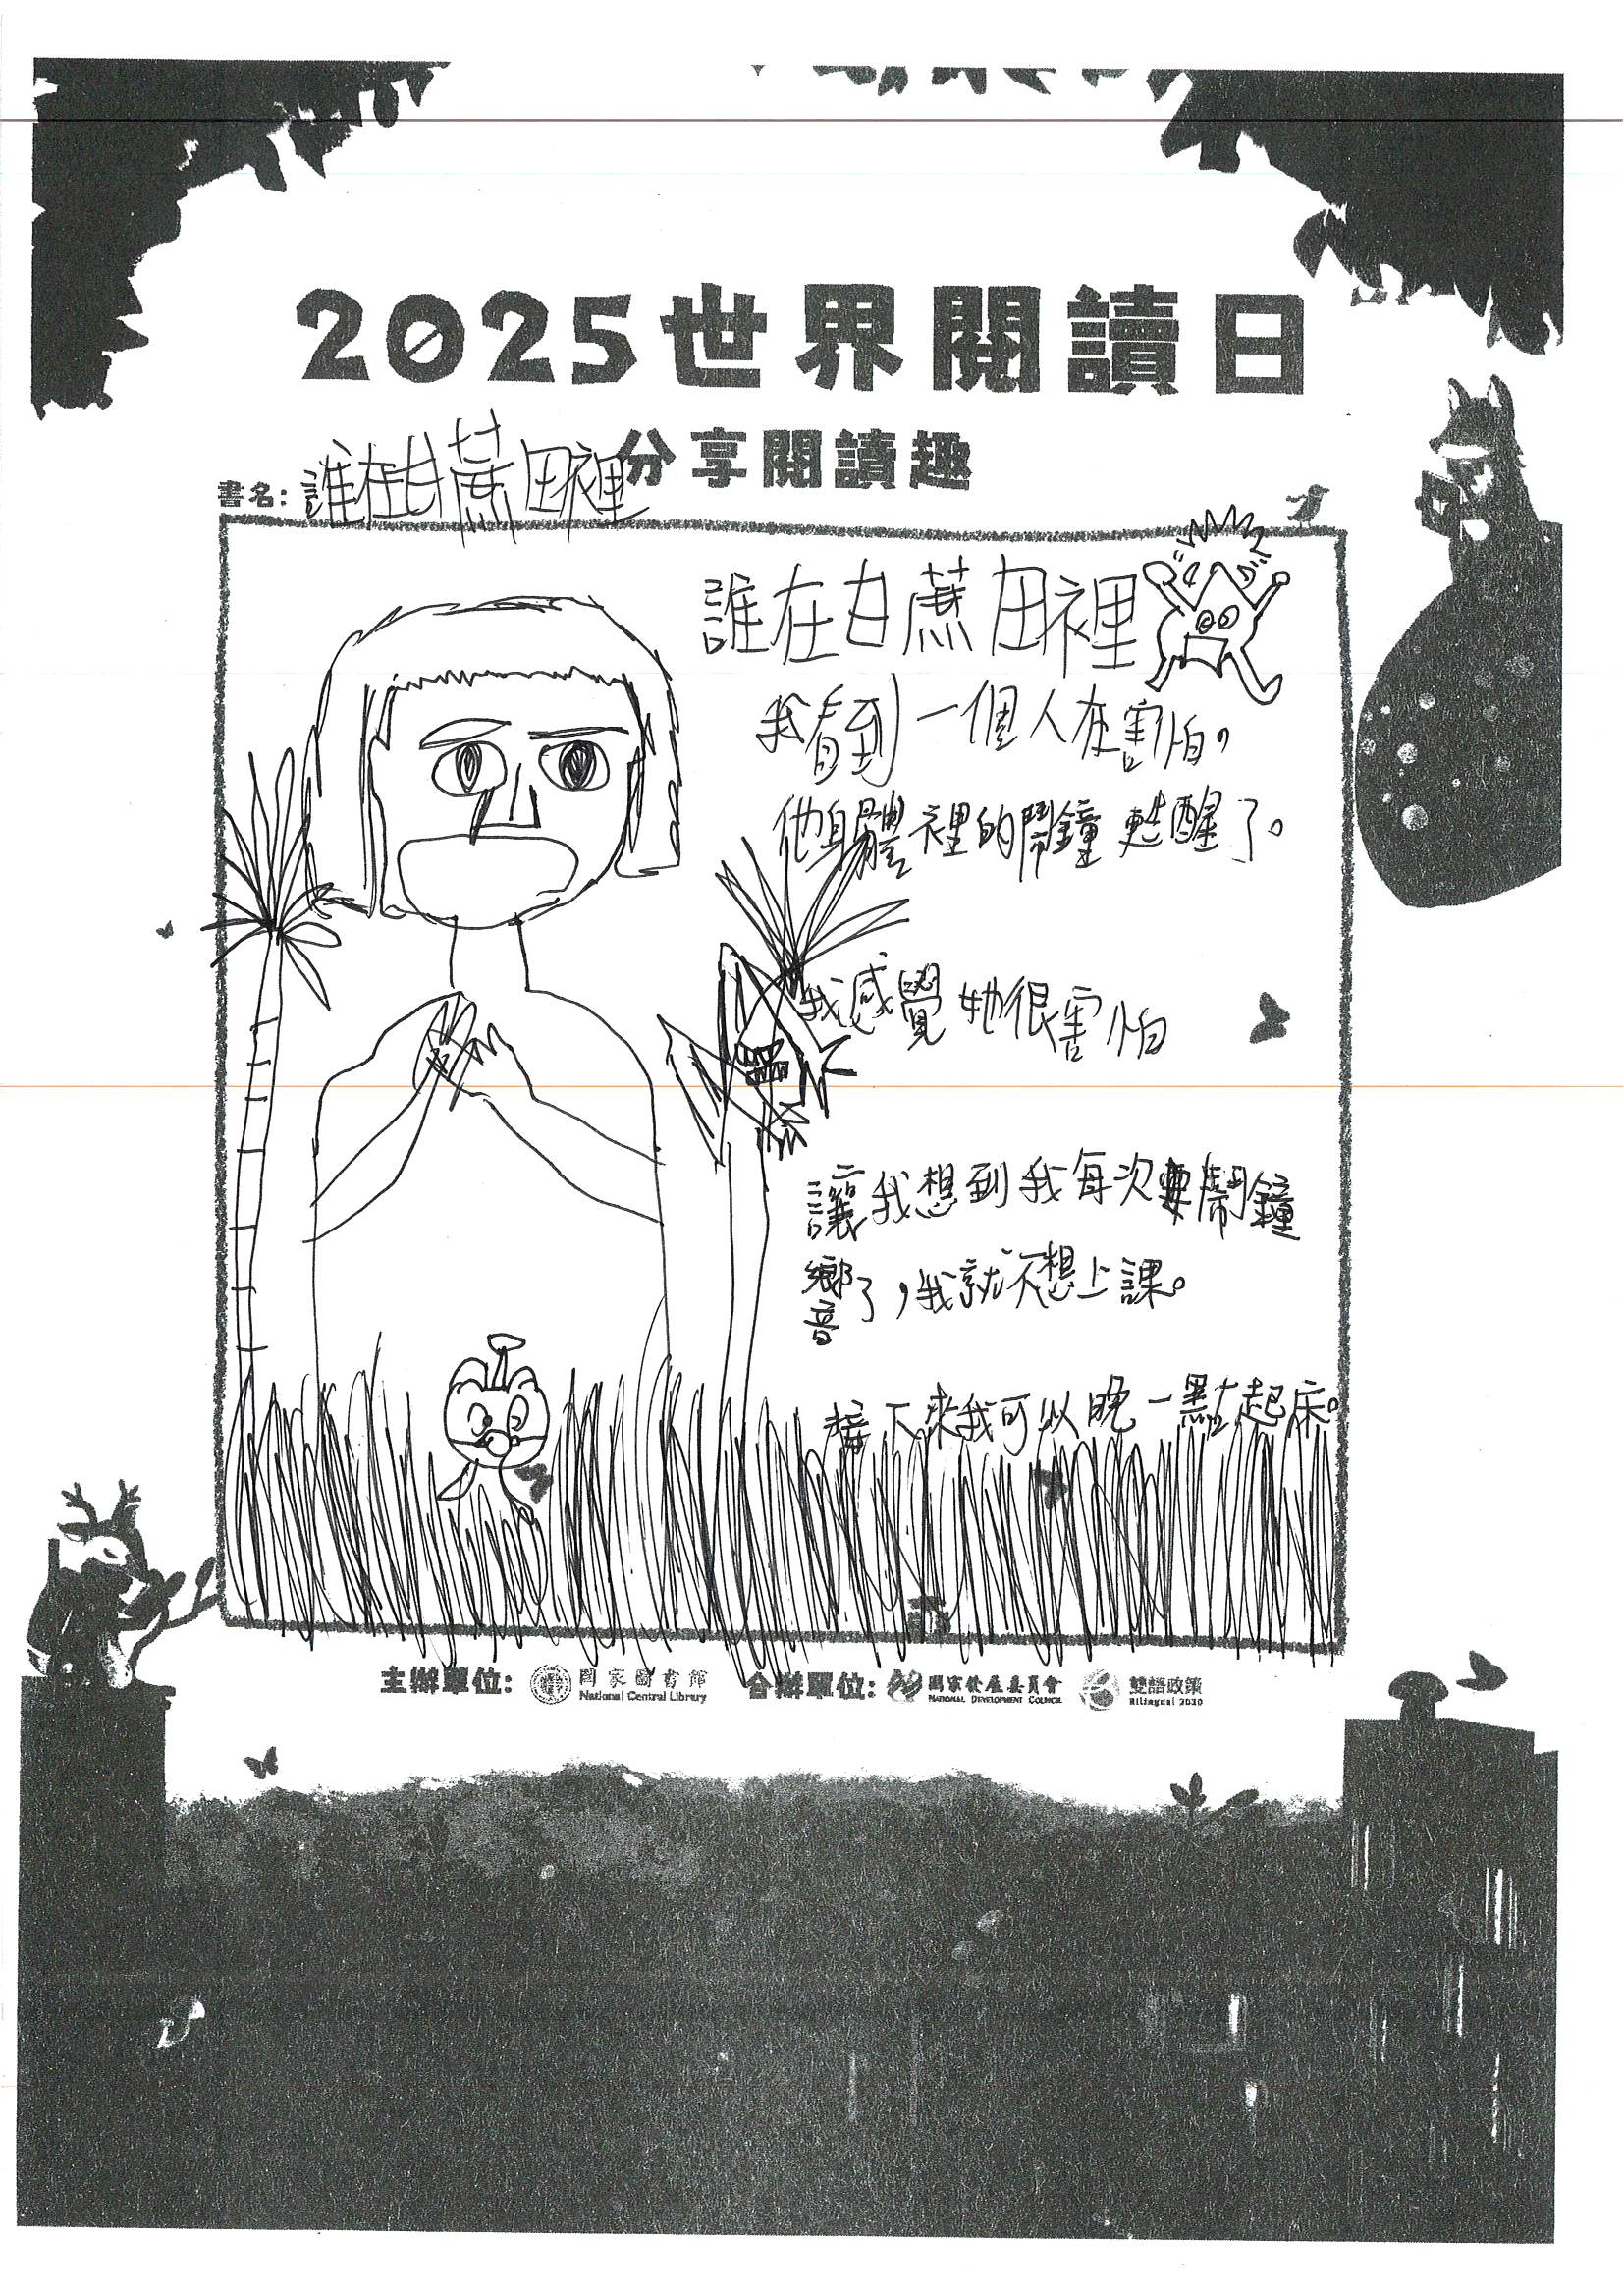 2025世界閱讀日
分享閱讀趣
書名：誰在甘蔗田裡
誰在甘蔗田裡
我看到一個人在害怕，
他身體裡的鬧鐘甦醒了。
我感覺她很害怕
讓我想到我每次要鬧鐘
響了，我就不想上課。
接下來我可以晚一點起床。
主辦單位： 國家圖書館 National Central Library 合辦單位： 國家發展委員會 National Development Council 雙語政策 Bilingual 2030